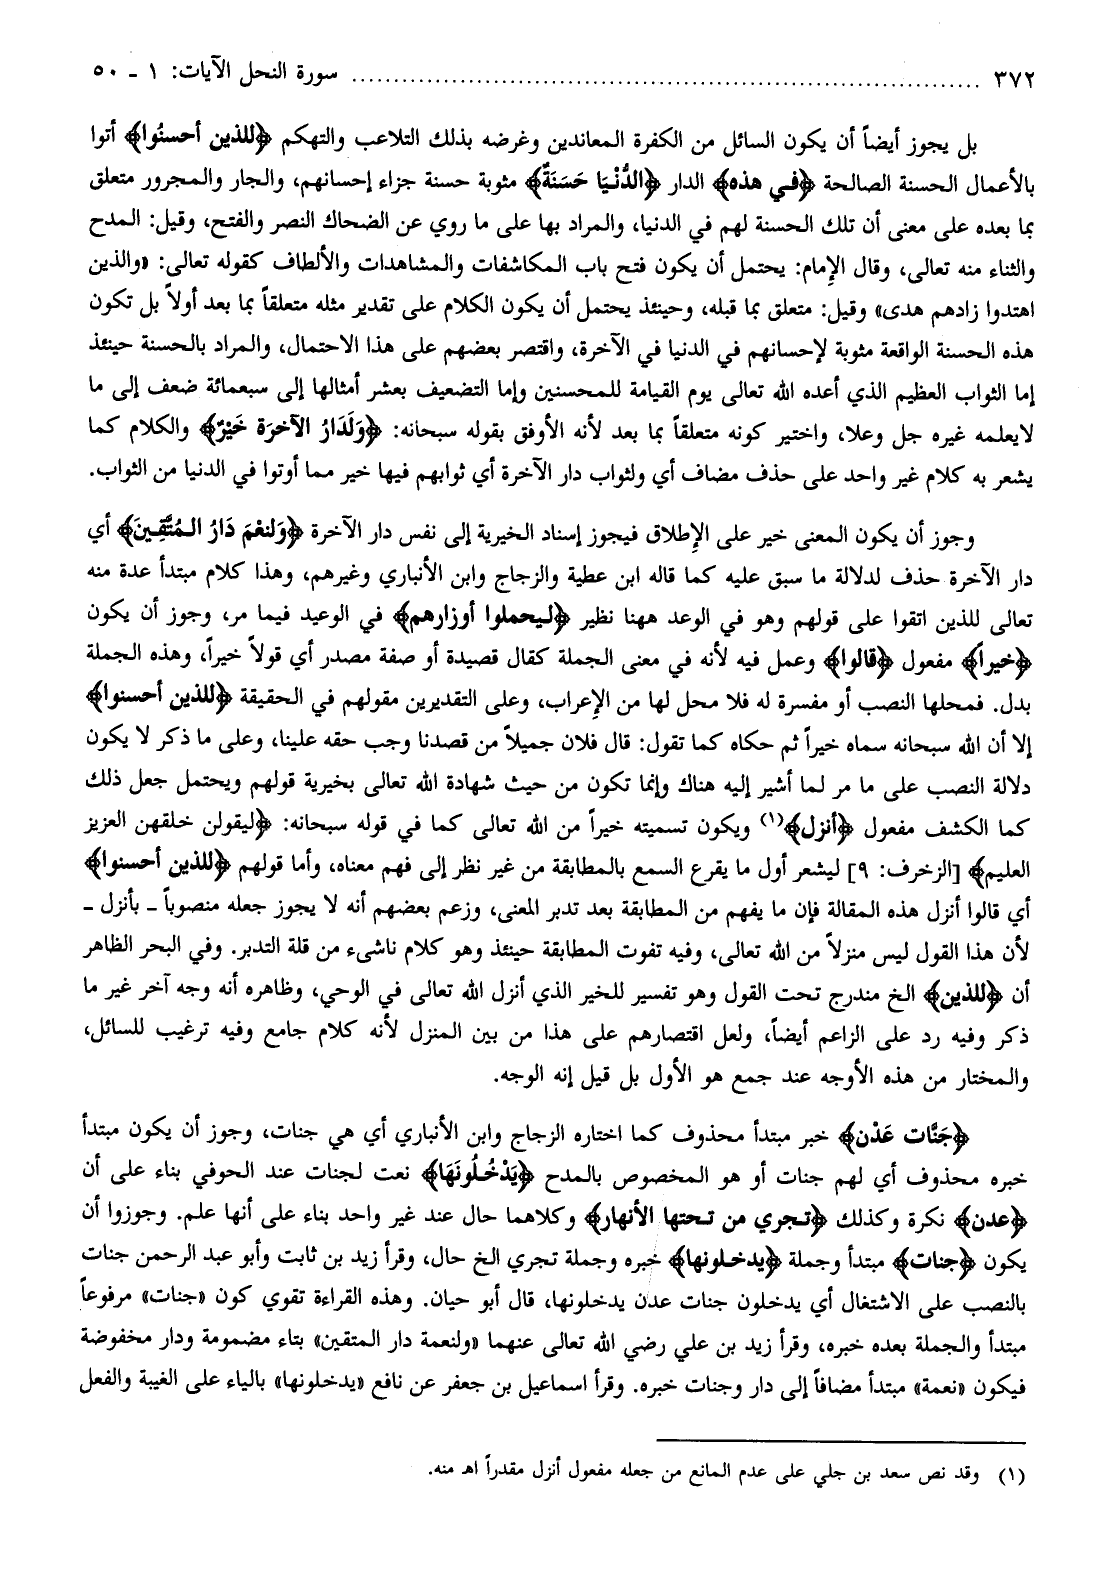 ٣٧٢ ........................................ سورة النحل الآيات: ١ ـ ٥٠
بل يجوز أيضاً أن يكون السائل من الكفرة المعاندين وغرضه بذلك التلاعب والتهكم ﴿للذين أحسنُوا﴾ أتوا
بالأعمال الحسنة الصالحة ﴿في هذه﴾ الدار ﴿الدُّنْيَا حَسَنَةٌ﴾ مثوبة حسنة جزاء إحسانهم، والجار والمجرور متعلق
بما بعده على معنى أن تلك الحسنة لهم في الدنيا، والمراد بها على ما روي عن الضحاك النصر والفتح، وقيل: المدح
والثناء منه تعالى، وقال الإمام: يحتمل أن يكون فتح باب المكاشفات والمشاهدات والألطاف كقوله تعالى: «والذين
اهتدوا زادهم هدى» وقيل: متعلق بما قبله، وحينئذ يحتمل أن يكون الكلام على تقدير مثله متعلقاً بما بعد أولاً بل تكون
هذه الحسنة الواقعة مثوبة لإحسانهم في الدنيا في الآخرة، واقتصر بعضهم على هذا الاحتمال، والمراد بالحسنة حينئذ
إما الثواب العظيم الذي أعده الله تعالى يوم القيامة للمحسنين وإما التضعيف بعشر أمثالها إلى سبعمائة ضعف إلى ما
لايعلمه غيره جل وعلا، واختير كونه متعلقاً بما بعد لأنه الأوفق بقوله سبحانه: ﴿وَلَدَارُ الآخرَة خَيْرٌ﴾ والكلام كما
يشعر به كلام غير واحد على حذف مضاف أي ولثواب دار الآخرة أي ثوابهم فيها خير مما أوتوا في الدنيا من الثواب.
وجوز أن يكون المعنى خير على الإطلاق فيجوز إسناد الخيرية إلى نفس دار الآخرة ﴿وَلنعْمَ دَارُ المُتَّقِينَ﴾ أي
دار الآخرة حذف لدلالة ما سبق عليه كما قاله ابن عطية والزجاج وابن الأنباري وغيرهم، وهذا كلام مبتدأ عدة منه
تعالى للذين اتقوا على قولهم وهو في الوعد ههنا نظير ﴿ليحملوا أوزارهم﴾ في الوعيد فيما مر، وجوز أن يكون
﴿خيراً﴾ مفعول ﴿قالوا﴾ وعمل فيه لأنه في معنى الجملة كقال قصيدة أو صفة مصدر أي قولاً خيراً، وهذه الجملة
بدل. فمحلها النصب أو مفسرة له فلا محل لها من الإعراب، وعلى التقديرين مقولهم في الحقيقة ﴿للذين أحسنوا﴾
إلا أن الله سبحانه سماه خيراً ثم حكاه كما تقول: قال فلان جميلاً من قصدنا وجب حقه علينا، وعلى ما ذكر لا يكون
دلالة النصب على ما مر لما أشير إليه هناك وإنما تكون من حيث شهادة الله تعالى بخيرية قولهم ويحتمل جعل ذلك
كما الكشف مفعول ﴿أنزل﴾(١) ويكون تسميته خيراً من الله تعالى كما في قوله سبحانه: ﴿ليقولن خلقهن العزيز
العليم﴾ [الزخرف: ٩] ليشعر أول ما يقرع السمع بالمطابقة من غير نظر إلى فهم معناه، وأما قولهم ﴿للذين أحسنوا﴾
أي قالوا أنزل هذه المقالة فإن ما يفهم من المطابقة بعد تدبر المعنى، وزعم بعضهم أنه لا يجوز جعله منصوباً ـ بأنزل ـ
لأن هذا القول ليس منزلاً من الله تعالى، وفيه تفوت المطابقة حينئذ وهو كلام ناشىء من قلة التدبر. وفي البحر الظاهر
أن ﴿للذين﴾ الخ مندرج تحت القول وهو تفسير للخير الذي أنزل الله تعالى في الوحي، وظاهره أنه وجه آخر غير ما
ذكر وفيه رد على الزاعم أيضاً، ولعل اقتصارهم على هذا من بين المنزل لأنه كلام جامع وفيه ترغيب للسائل،
والمختار من هذه الأوجه عند جمع هو الأول بل قيل إنه الوجه.
﴿جَنَّات عَدْن﴾ خبر مبتدأ محذوف كما اختاره الزجاج وابن الأنباري أي هي جنات، وجوز أن يكون مبتدأ
خبره محذوف أي لهم جنات أو هو المخصوص بالمدح ﴿يَدْخُلُونَهَا﴾ نعت لجنات عند الحوفي بناء على أن
﴿عدن﴾ نكرة وكذلك ﴿تجري من تحتها الأنهار﴾ وكلاهما حال عند غير واحد بناء على أنها علم. وجوزوا أن
يكون ﴿جنات﴾ مبتدأ وجملة ﴿يدخلونها﴾ خبره وجملة تجري الخ حال، وقرأ زيد بن ثابت وأبو عبد الرحمن جنات
بالنصب على الاشتغال أي يدخلون جنات عدن يدخلونها، قال أبو حيان. وهذه القراءة تقوي كون «جنات» مرفوعاً
مبتدأ والجملة بعده خبره، وقرأ زيد بن علي رضي الله تعالى عنهما «ولنعمة دار المتقين» بتاء مضمومة ودار مخفوضة
فيكون «نعمة» مبتدأ مضافاً إلى دار وجنات خبره. وقرأ اسماعيل بن جعفر عن نافع «يدخلونها» بالياء على الغيبة والفعل
(١) وقد نص سعد بن جلي على عدم المانع من جعله مفعول أنزل مقدراً اهـ منه.